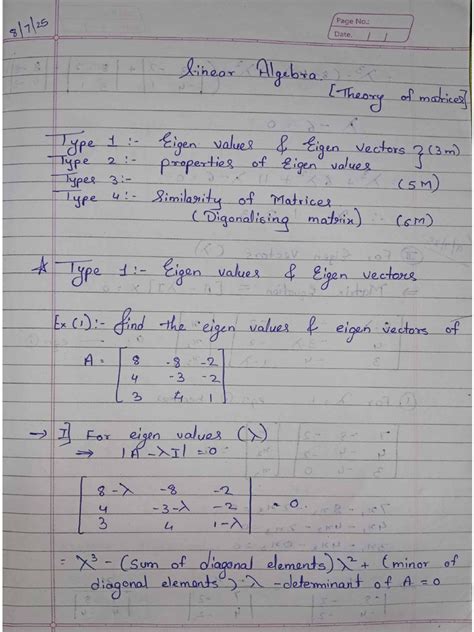 8/7/25
Page No.:
Date. / /
Linear Algebra
[Theory of matrices]
Type 1 :- Eigen values & Eigen vectors } (3m)
Type 2 :- properties of Eigen values
Types 3 :- (5M)
Type 4 :- Similarity of Matrices
(Digonalising matrix) (6M)
☆ Type 1 :- Eigen values & Eigen vectors
Ex (1) :- find the eigen values & eigen vectors of
A = [ 8 -8 -2
4 -3 -2
3 4 1 ]
→ I] For eigen values (λ)
⇒ |A - λI| = 0
| 8-λ -8 -2 |
| 4 -3-λ -2 | = 0
| 3 4 1-λ |
= λ³ - (sum of diagonal elements) λ² + (minor of
diagonal elements) λ - determinant of A = 0